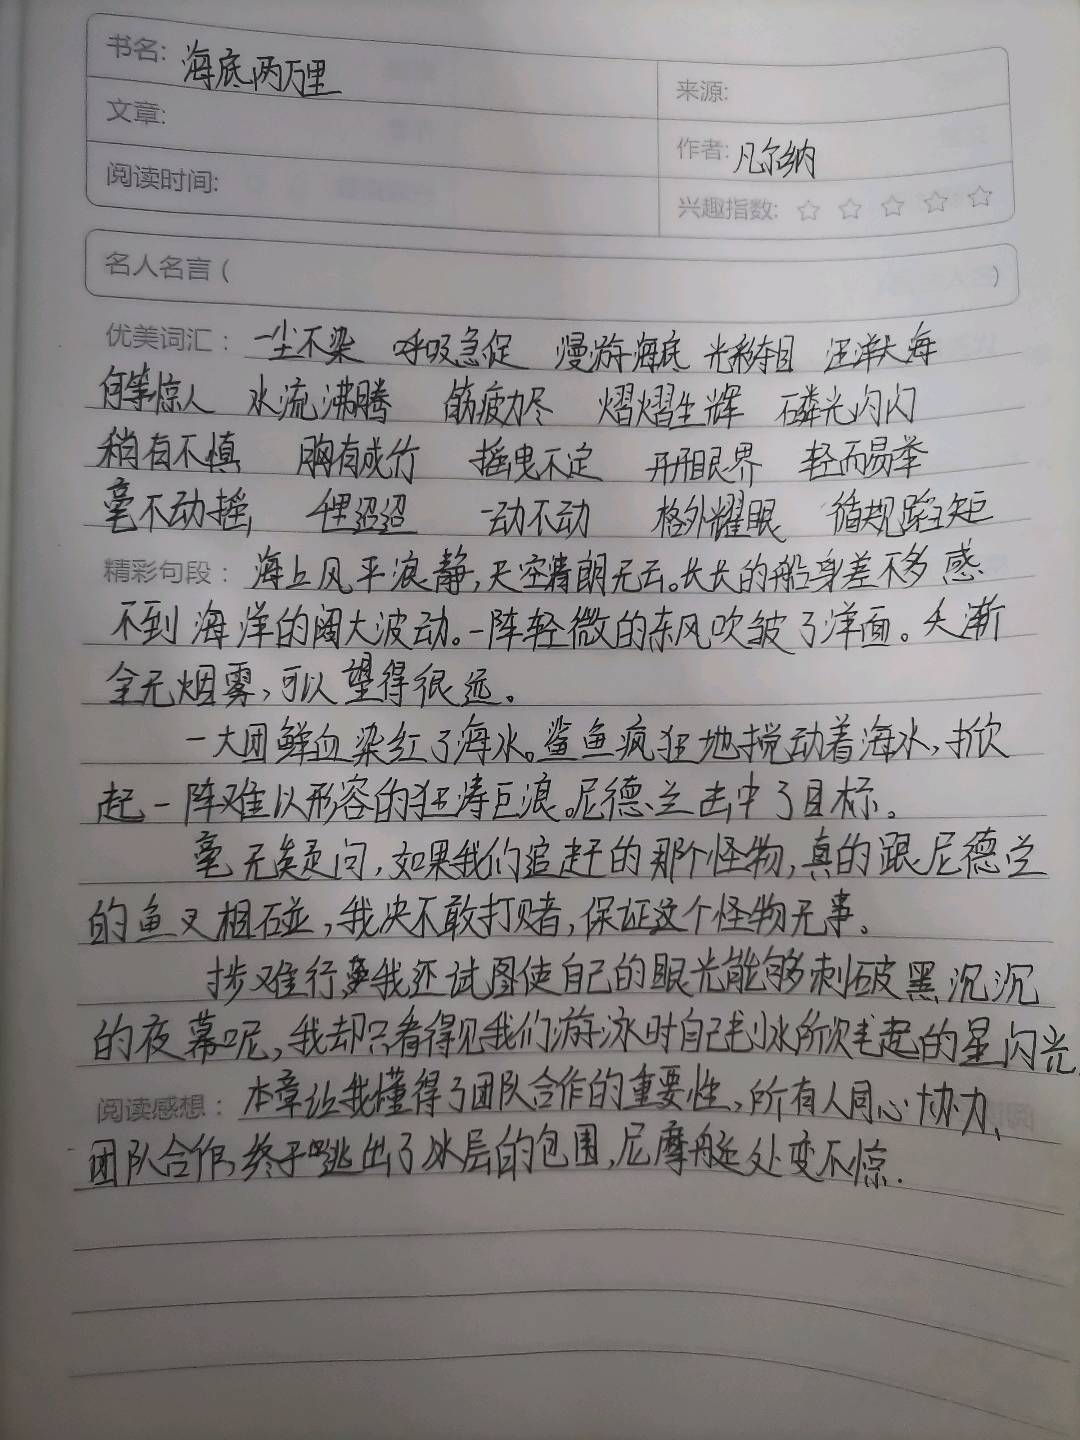 书名: 海底两万里
来源:
文章:
作者: 凡尔纳
阅读时间:
兴趣指数: ☆ ☆ ☆ ☆ ☆
名人名言 ( )
优美词汇: 一尘不染 呼吸急促 漫游海底 光彩夺目 汪洋大海
何等惊人 水流沸腾 筋疲力尽 熠熠生辉 磷光闪闪
稍有不慎 胸有成竹 摇曳不定 开阔眼界 轻而易举
毫不动摇 千里迢迢 一动不动 格外耀眼 循规蹈矩
精彩句段: 海上风平浪静,天空晴朗无云。长长的船身差不多感
不到海洋的阔大波动。一阵轻微的东风吹皱了洋面。天渐
全无烟雾,可以望得很远。
一大团鲜血染红了海水。鲨鱼疯狂地搅动着海水,掀
起一阵难以形容的狂涛巨浪。尼德·兰击中了目标。
毫无疑问,如果我们追赶的那个怪物,真的跟尼德兰
的鱼叉相碰,我决不敢打赌,保证这个怪物无事。
步难行,我还试图使自己的眼光能够刺破黑沉沉
的夜幕呢,我却只看得见我们游泳时自己划水所激起的星闪光
阅读感想: 本章让我懂得了团队合作的重要性,所有人同心协力、
团队合作,终于逃出了冰层的包围,尼摩艇处变不惊.